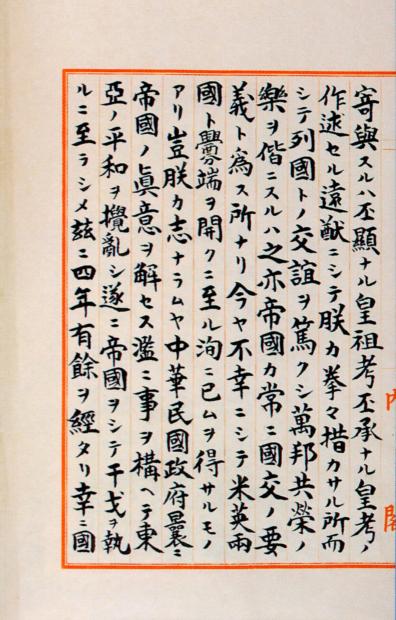 寄與スルハ丕顯ナル皇祖考丕承ナル皇考ノ
作述セル遠猷ニシテ朕カ拳々措カサル所而
シテ列國トノ交誼ヲ篤クシ萬邦共榮ノ
樂ヲ偕ニスルハ之亦帝國カ常ニ國交ノ要
義ト爲ス所ナリ今ヤ不幸ニシテ米英兩
國ト釁端ヲ開クニ至ル洵ニ已ムヲ得サルモノ
アリ豈朕カ志ナラムヤ中華民國政府曩ニ
帝國ノ眞意ヲ解セス濫ニ事ヲ構ヘテ東
亞ノ平和ヲ攪亂シ遂ニ帝國ヲシテ干戈ヲ執
ルニ至ラシメ茲ニ四年有餘ヲ經タリ幸ニ國
内閣